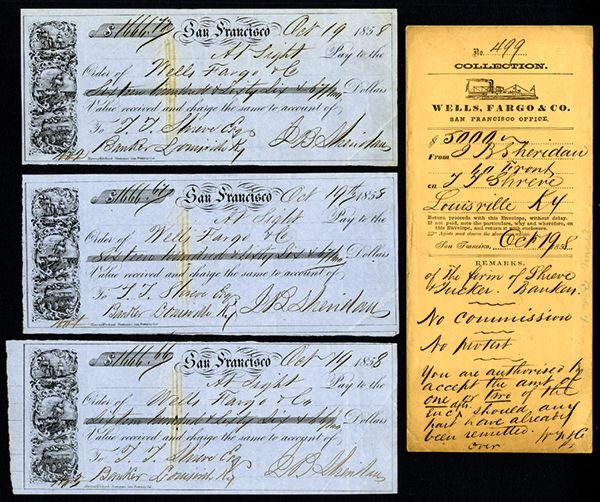 $1666.70 San Francisco Oct 19 1858
At Sight Pay to the
Order of Wells Fargo & Co
Sixteen hundred & sixty six & 67/100 Dollars
Value received and charge the same to account of
To T. T. Shreve Esq
Banker Louisville Ky J B Sheridan
$1666.67 San Francisco Oct 19th 1858
At Sight Pay to the
Order of Wells Fargo & Co
Sixteen hundred & sixty six & 67/100 Dollars
Value received and charge the same to account of
To T. T. Shreve Esq
Banker Louisville Ky J B Sheridan
$1666.66 San Francisco Oct 19 1858
At Sight Pay to the
Order of Wells Fargo & Co
Sixteen hundred & sixty six 66/100 Dollars
Value received and charge the same to account of
To T. T. Shreve Esq
Banker Louisville Ky J B Sheridan
No. 499
COLLECTION.
WELLS, FARGO & CO.
SAN FRANCISCO OFFICE.
$ 5000
From J B Sheridan
on T T Shreve
Louisville Ky
Return proceeds with this Envelope, without delay.
If not paid, note the particulars, why and wherefore, on
this Envelope, and return it with enclosure.
San Francisco, Oct 19 1858.
REMARKS.
of The firm of Shreve
& Tucker. Bankers.
No commission
No protest
You are authorised by
accept the amt of
one or two of the
encd dfts. should any
part have already
been remitted. W F & Co
over